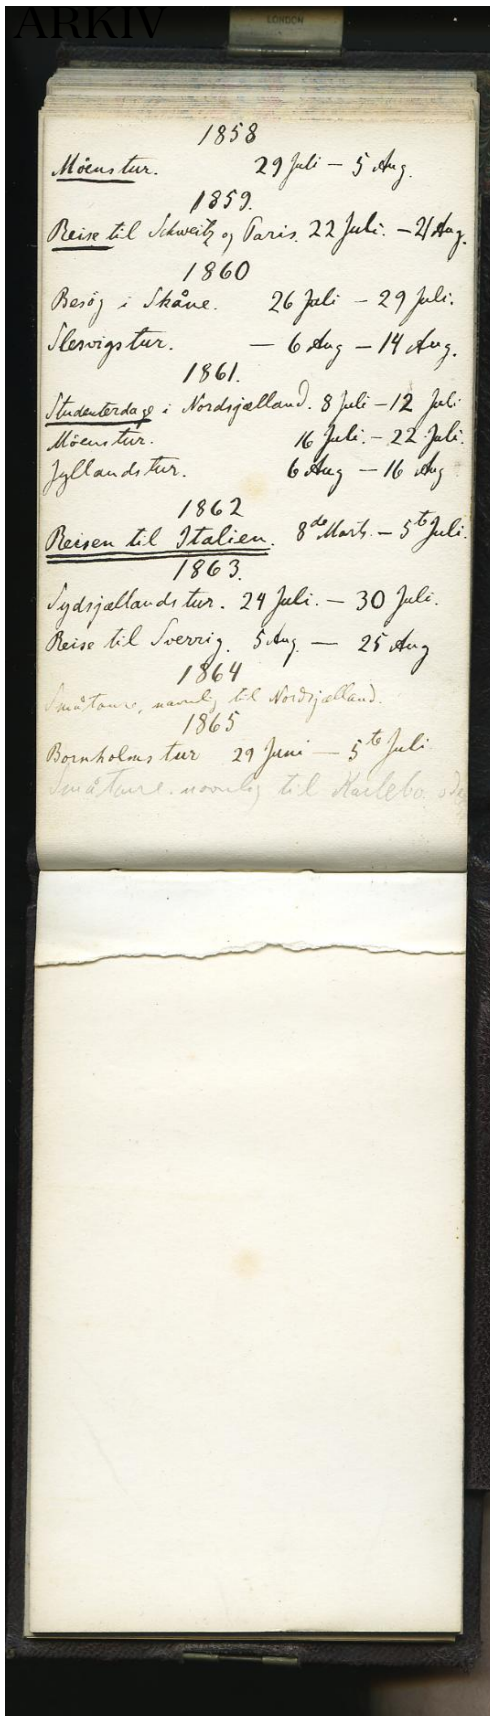 ARKIV
LONDON
1858
Möenstur. 29 Juli — 5 Aug.
1859.
Reise til Schweitz og Paris. 22 Juli. — 21 Aug.
1860
Besög i Skåne. 26 Juli — 29 Juli.
Slesvigstur. — 6 Aug — 14 Aug.
1861.
Studenterdage i Nordsjælland. 8 Juli — 12 Juli.
Möenstur. 16 Juli. — 22 Juli.
Jyllandstur. 6 Aug — 16 Aug
1862
Reisen til Italien. 8de Marts. — 5te Juli.
1863.
Sydsjællandstur. 24 Juli. — 30 Juli.
Reise til Sverrig. 5 Aug — 25 Aug
1864
Småtoure, navnlig til Nordsjælland.
1865
Bornholmstur 29 Juni — 5te Juli
Småtoure. navnlig til Karlebo